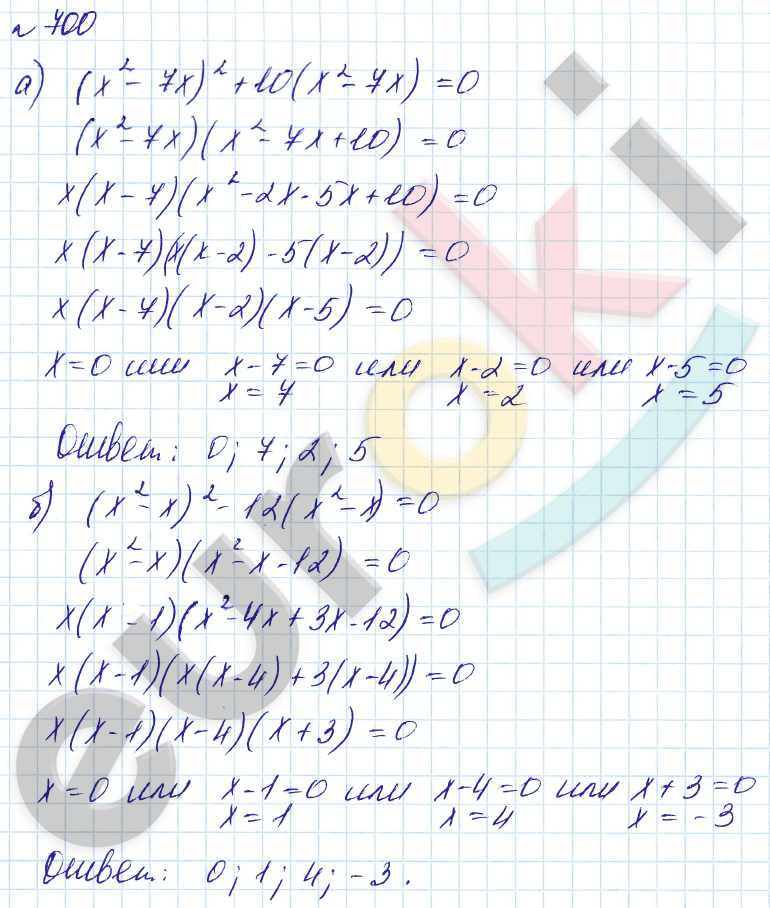 № 700
а) (x² - 7x)² + 10(x² - 7x) = 0
(x² - 7x)(x² - 7x + 10) = 0
x(x - 7)(x² - 2x - 5x + 10) = 0
x(x - 7)(x(x - 2) - 5(x - 2)) = 0
x(x - 7)(x - 2)(x - 5) = 0
x = 0 или x - 7 = 0 или x - 2 = 0 или x - 5 = 0
x = 7 x = 2 x = 5
Ответ: 0; 7; 2; 5
б) (x² - x)² - 12(x² - x) = 0
(x² - x)(x² - x - 12) = 0
x(x - 1)(x² - 4x + 3x - 12) = 0
x(x - 1)(x(x - 4) + 3(x - 4)) = 0
x(x - 1)(x - 4)(x + 3) = 0
x = 0 или x - 1 = 0 или x - 4 = 0 или x + 3 = 0
x = 1 x = 4 x = -3
Ответ: 0; 1; 4; -3.
euroki